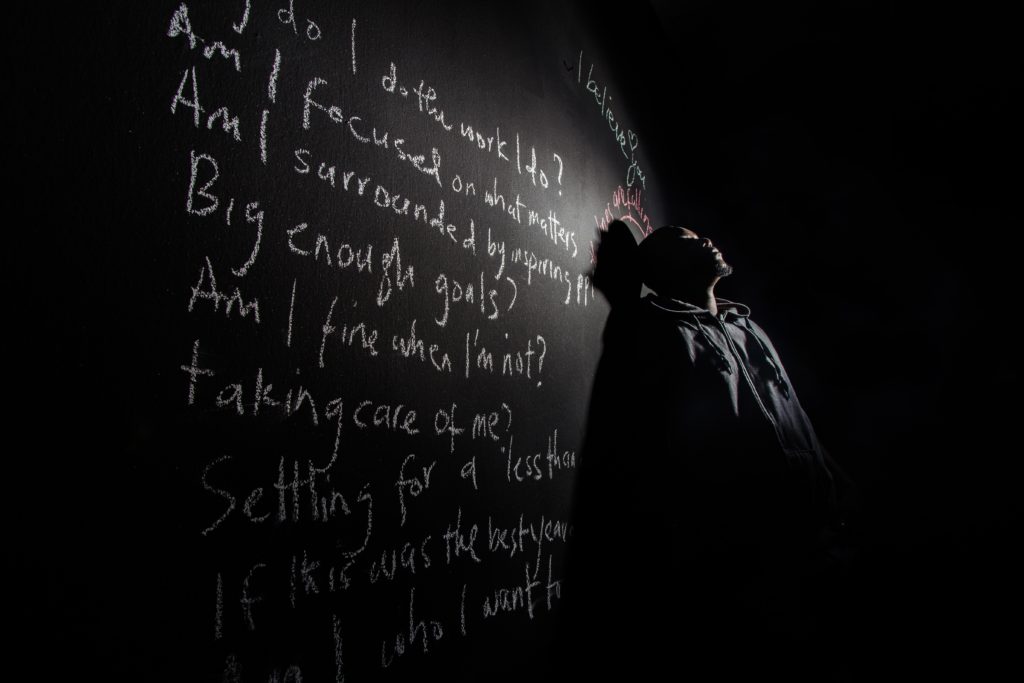 do I do the work I do?
Am I focused on what matters
Am I surrounded by inspiring ppl
Big enough goals?
Am I fine when I'm not?
taking care of me?
Settling for a "less than
If this was the best year
Am I who I want to
I believe you